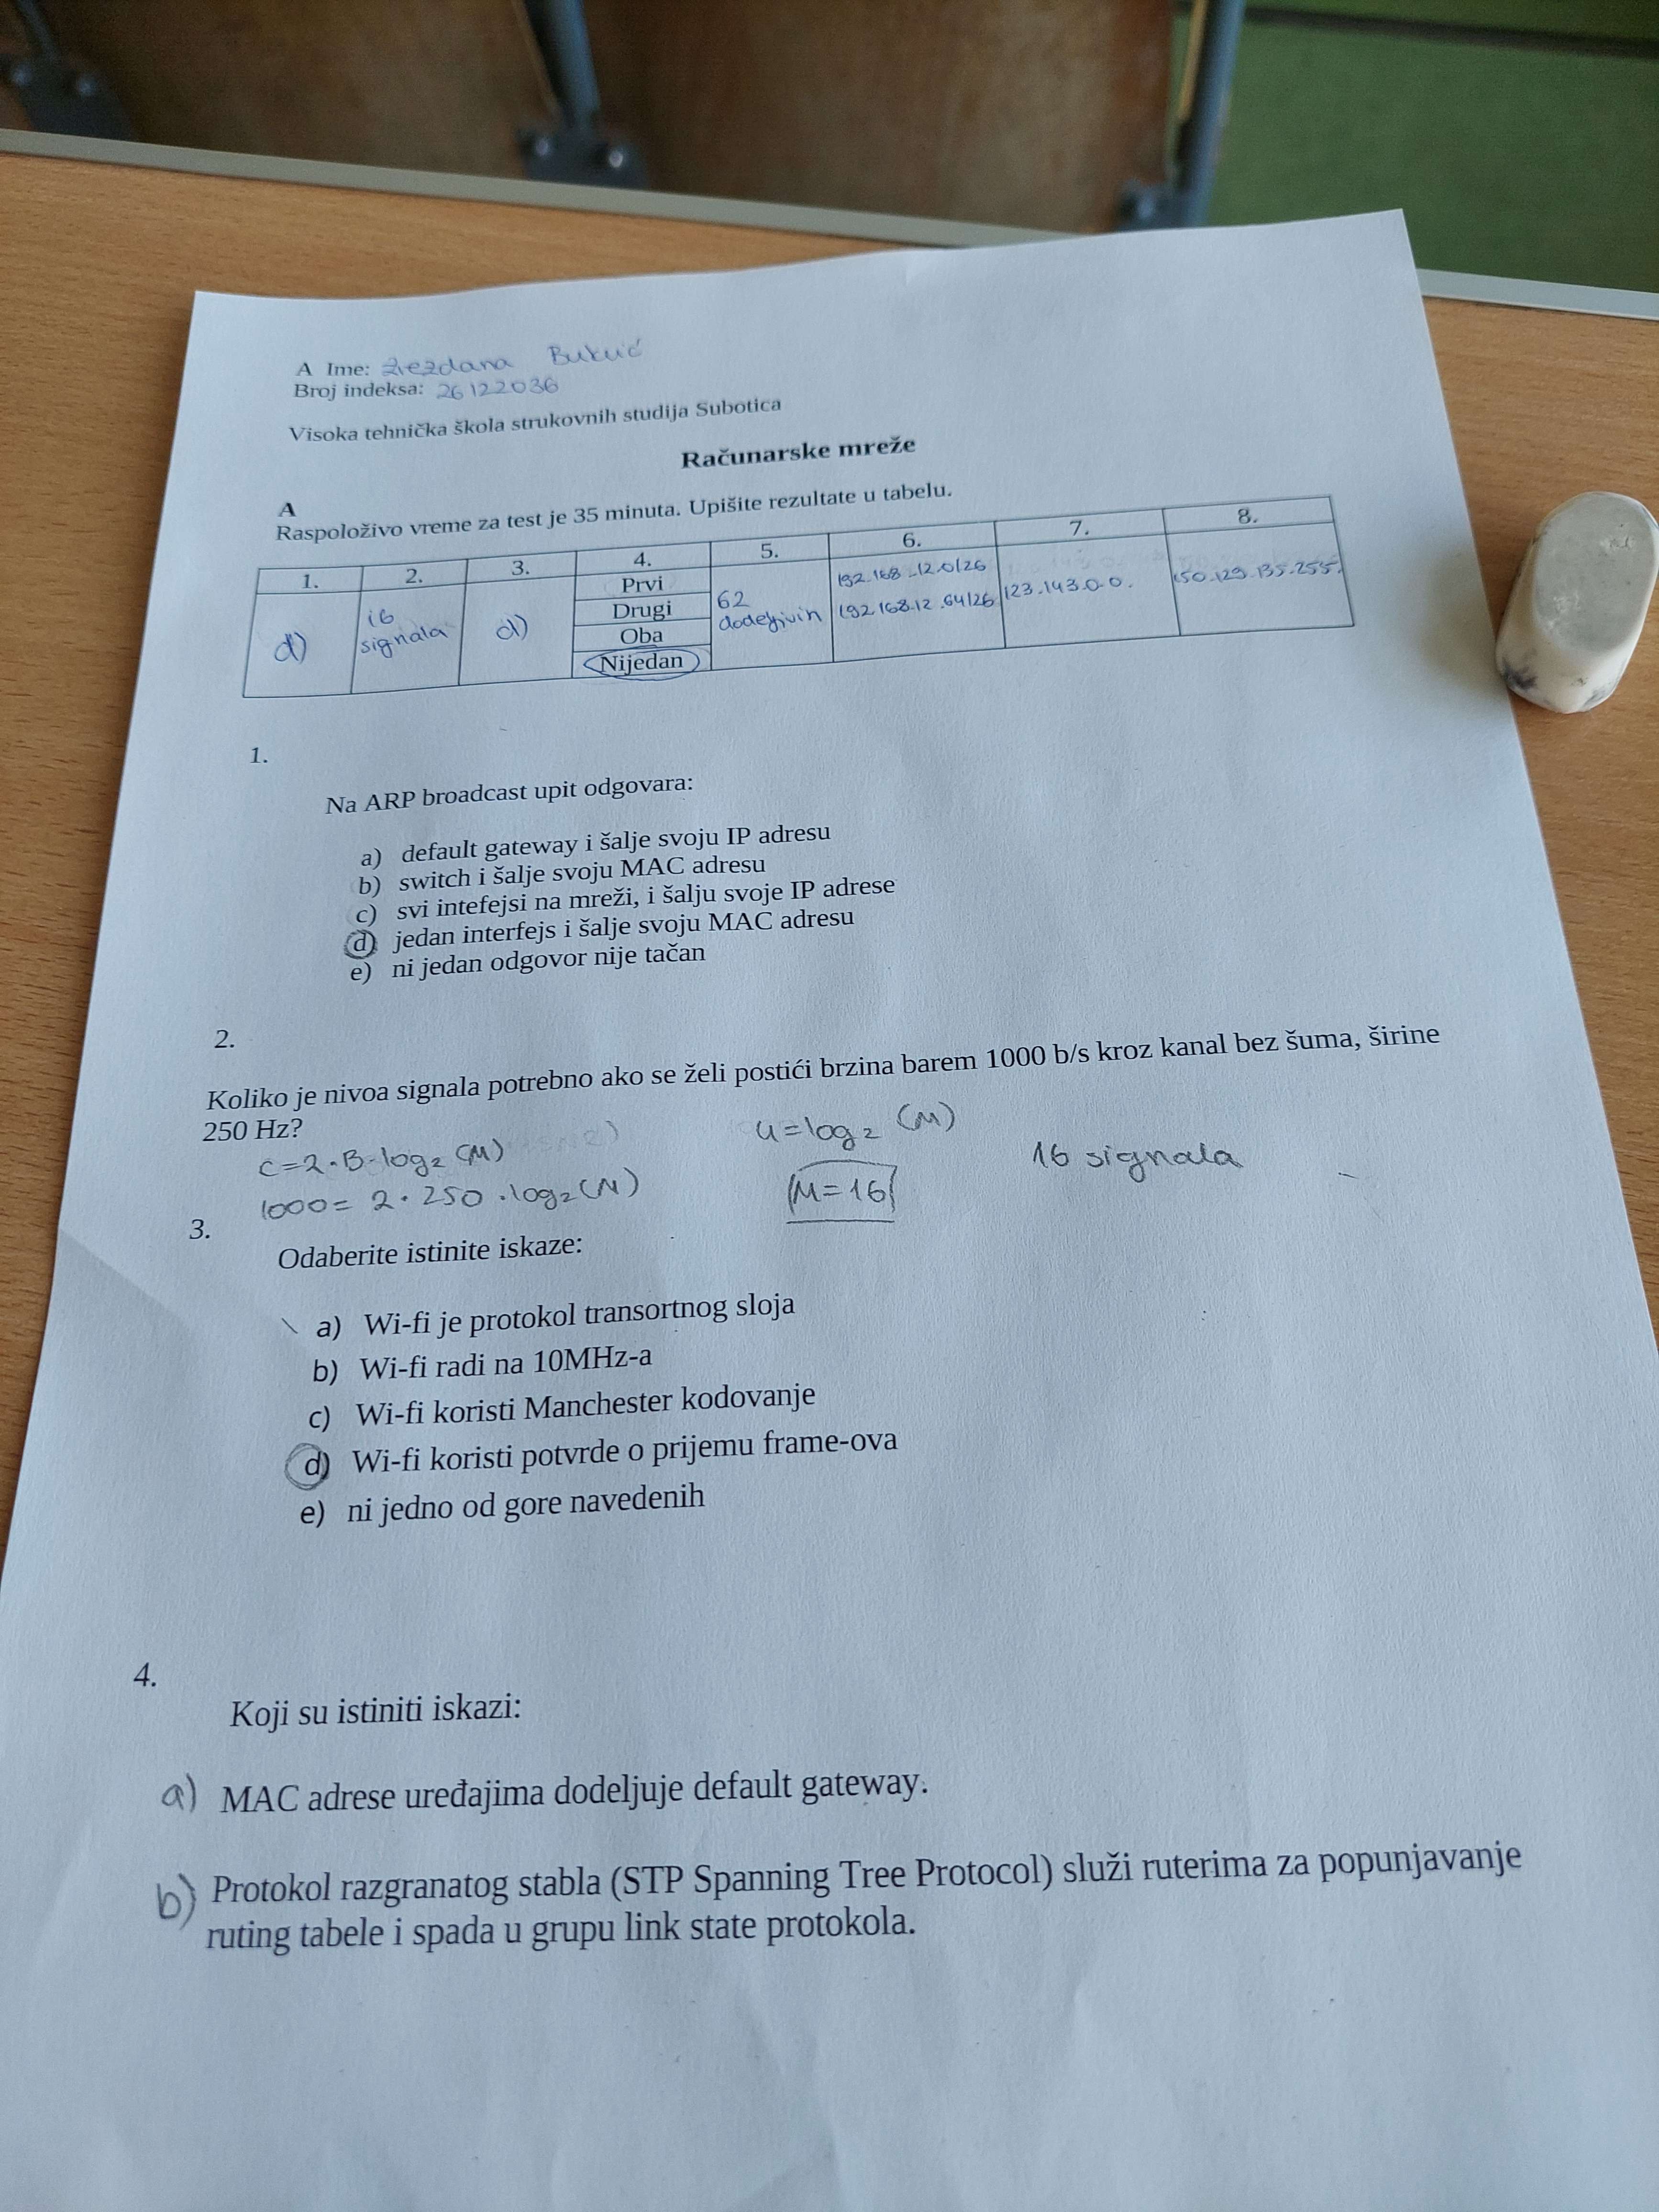 A Ime: Zvezdana Bukvić
Broj indeksa: 26122036
Visoka tehnička škola strukovnih studija Subotica
Računarske mreže
A
Raspoloživo vreme za test je 35 minuta. Upišite rezultate u tabelu.
1. 2. 3. 4. 5. 6. 7. 8.
d) 16 signala d) Prvi Drugi Oba Nijedan 62 dodeljivih 192.168.12.0/26 192.168.12.64/26 123.143.0.0. 150.129.135.255.
1.
Na ARP broadcast upit odgovara:
a) default gateway i šalje svoju IP adresu
b) switch i šalje svoju MAC adresu
c) svi intefejsi na mreži, i šalju svoje IP adrese
d) jedan interfejs i šalje svoju MAC adresu
e) ni jedan odgovor nije tačan
2.
Koliko je nivoa signala potrebno ako se želi postići brzina barem 1000 b/s kroz kanal bez šuma, širine
250 Hz?
C=2·B·log₂ (M)
1000= 2·250·log₂(M)
4=log₂ (M)
M=16
16 signala
3.
Odaberite istinite iskaze:
a) Wi-fi je protokol transortnog sloja
b) Wi-fi radi na 10MHz-a
c) Wi-fi koristi Manchester kodovanje
d) Wi-fi koristi potvrde o prijemu frame-ova
e) ni jedno od gore navedenih
4.
Koji su istiniti iskazi:
a) MAC adrese uređajima dodeljuje default gateway.
b) Protokol razgranatog stabla (STP Spanning Tree Protocol) služi ruterima za popunjavanje
ruting tabele i spada u grupu link state protokola.